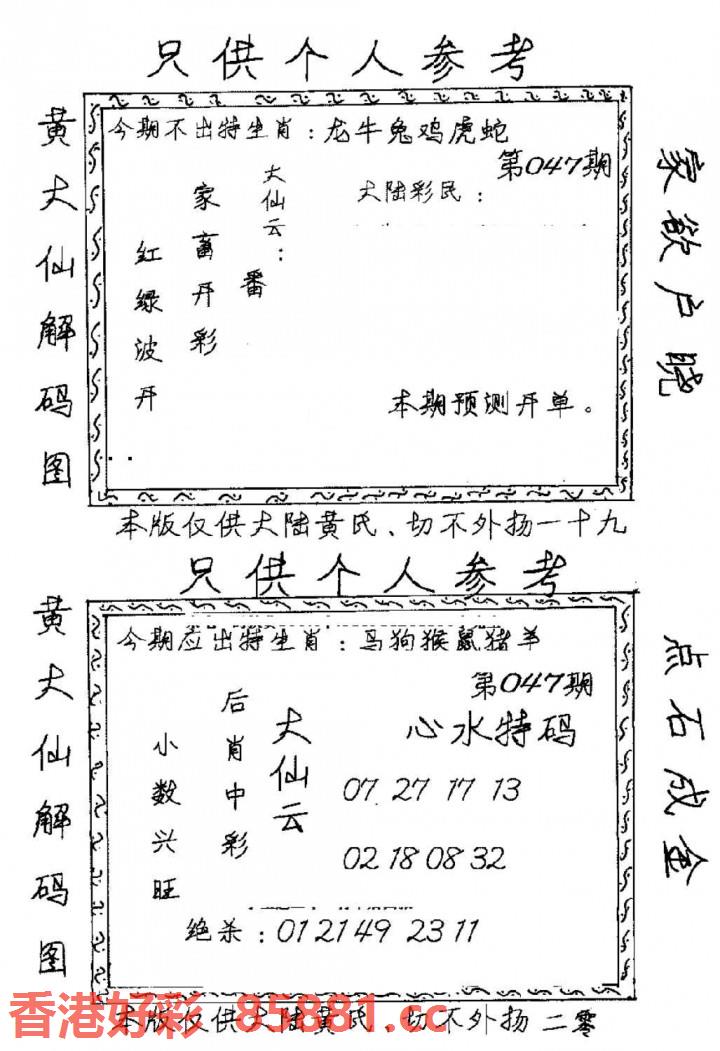 只供个人参考
黄大仙解码图
今期不出特生肖：龙牛兔鸡虎蛇
第047期
大陆彩民：
大仙云：
番
家畜开彩
红绿波开
本期预测开单。
家欲户晓
本版仅供大陆黄氏、切不外扬一十九
只供个人参考
黄大仙解码图
今期应出特生肖：马狗猴鼠猪羊
第047期
心水特码
大仙云
后肖中彩
小数兴旺
07 27 17 13
02 18 08 32
绝杀：01 21 49 23 11
点石成金
香港好彩 85881.cc
本版仅供大陆黄氏、切不外扬二零